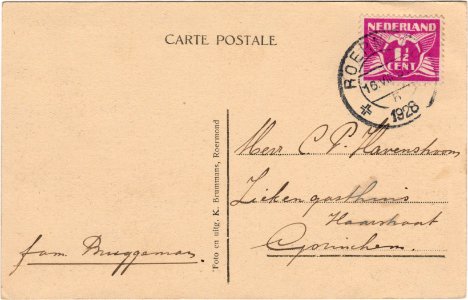 CARTE POSTALE
NEDERLAND
1½
CENT
ROERM
16.VII
1928
Foto en uitg. K. Brummans, Roermond
Heer C P Havenstroom
Ziekengasthuis
Haarstraat
Gorinchem.
fam. Bruggeman.